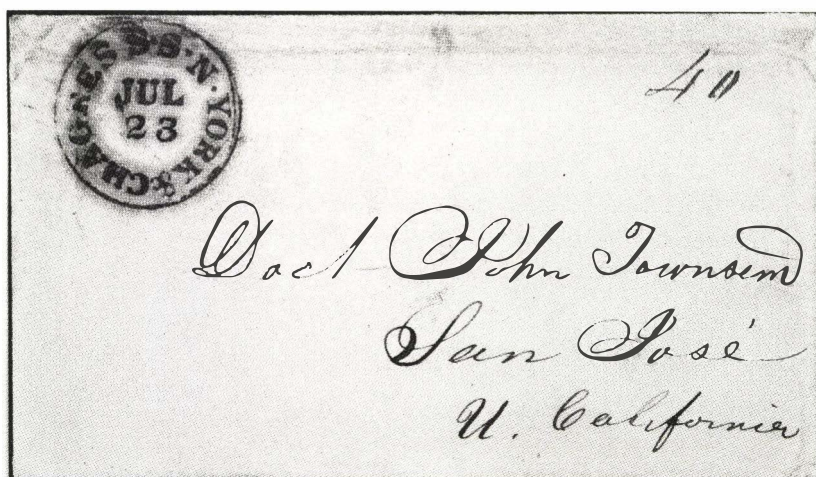 S.S.N.YORK & CHAGRES
JUL
23
40
Doct John Townsend
San José
U. California